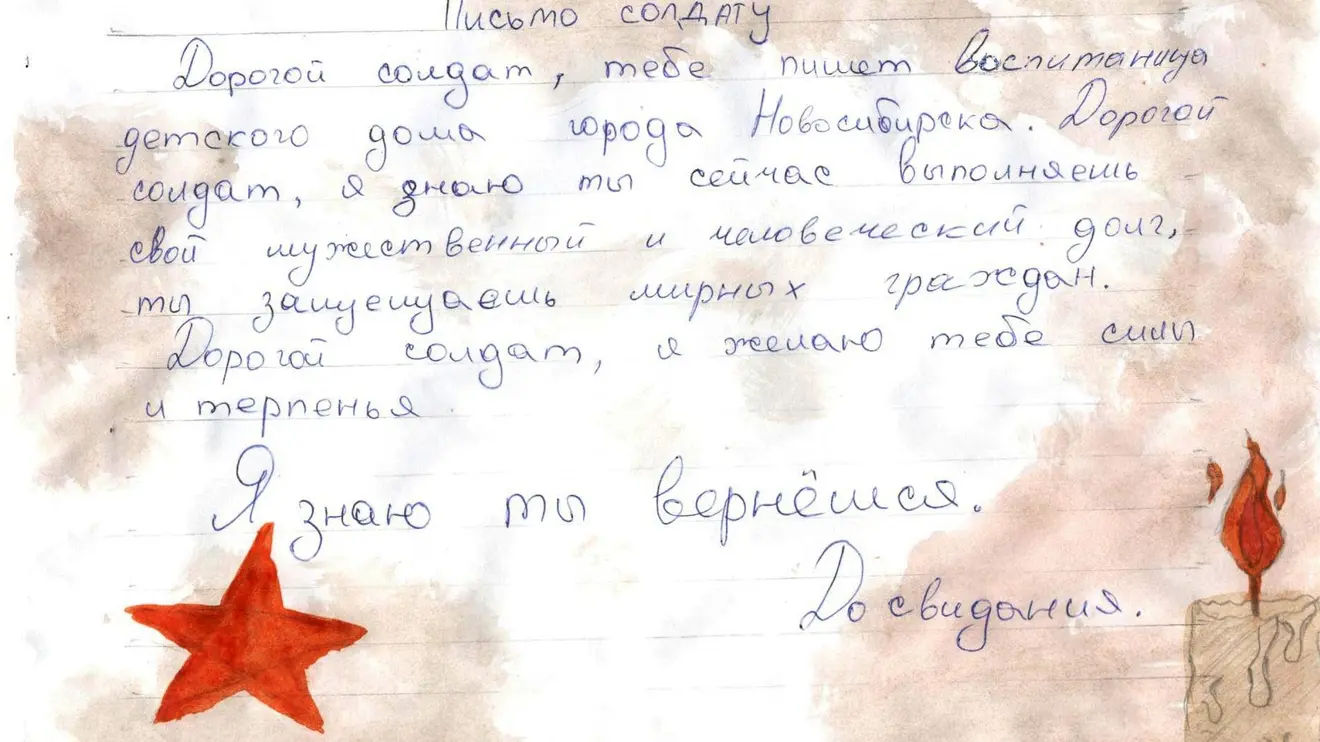 Письмо солдату
Дорогой солдат, тебе пишет воспитаница
детского дома города Новосибирска. Дорогой
солдат, я знаю ты сейчас выполняешь
свой мужественный и человеческий долг,
ты защещуаешь мирных граждан.
Дорогой солдат, я желаю тебе силы
и терпенья.
Я знаю ты вернёшся.
До свидания.